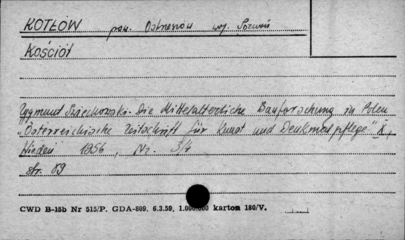 KOTŁÓW pow. Ostrzeszów woj. Poznań
Kościół
Zygmunt Świechowski - Die Mittelalterliche Bauforschung in Polen
"Österreichische Zeitschrift für Kunst und Denkmalpflege" X,
Wiedeń 1956, Nr. 3/4
str. 89
CWD B-15b Nr 515/P. GDA-809. 6.3.59, 1.000.000 kartom 180/V.